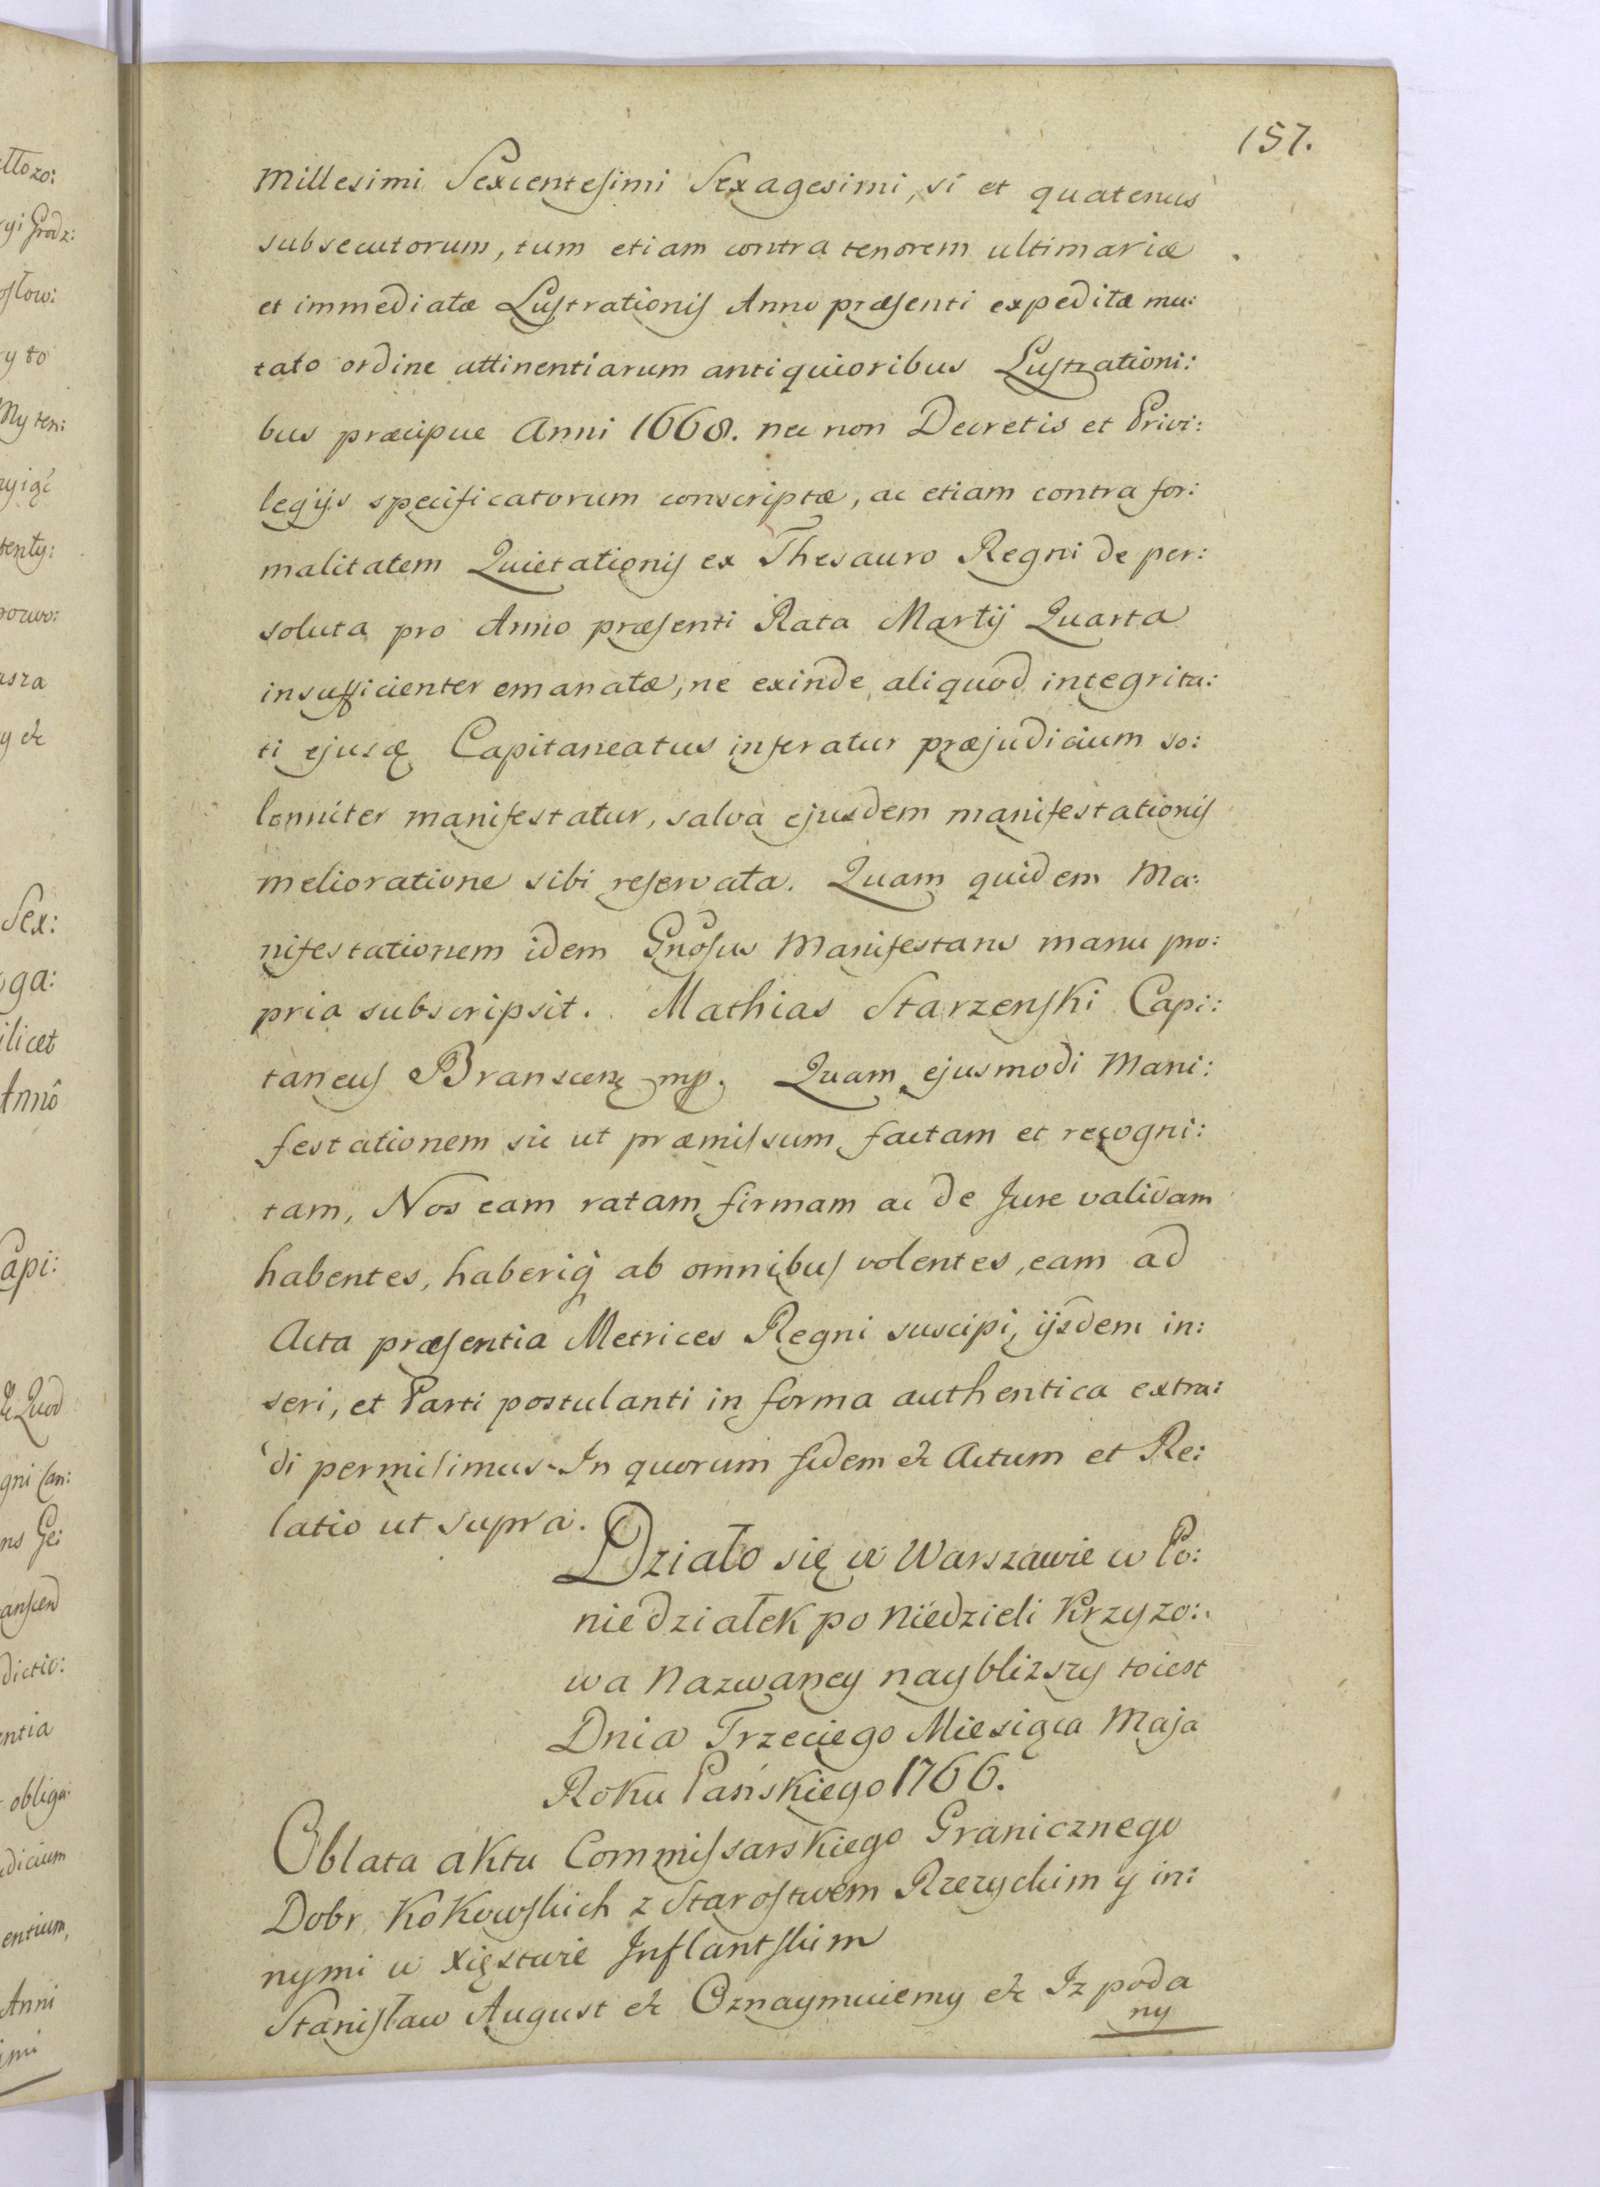 157.
Millesimi Sexcentesimi Sexagesimi, si et quatenus
subsecutorum, tum etiam contra tenorem ultimariæ
et immediatæ Lustrationis Anno præsenti expeditæ mu:
tato ordine attinentiarum antiquioribus Lustrationi:
bus præcipue Anni 1668. nec non Decretis et Privi:
legijs specificatorum conscriptæ, ac etiam contra for:
malitatem Quietationis ex Thesauro Regni de per:
soluta pro Anno præsenti Rata Martij Quarta
insufficienter emanatæ, ne exinde aliquod integrita:
ti ejusq Capitaneatus inferatur præjudicium so:
lenniter manifestatur, salva ejusdem manifestationis
melioratione sibi reservata. Quam quidem Ma:
nifestationem idem Gnosus Manifestans manu pro:
pria subscripsit. Mathias Starzenski Capi:
taneus Branscen mp. Quam ejusmodi Mani:
festationem sic ut præmissum factam et recogni:
tam, Nos eam ratam firmam ac de Jure validam
habentes, haberiq ab omnibus volentes, eam ad
Acta præsentia Metrices Regni suscipi, ijsdem in:
seri, et Parti postulanti in forma authentica extra:
di permisimus. In quorum fidem &c Actum et Re:
latio ut supra.
Działo się w Warszawie w Po:
niedziałek po Niedzieli Krzyzo:
wa Nazwaney nayblizszy toiest
Dnia Trzeciego Miesiąca Maja
Roku Pańskiego 1766.
Oblata aktu Commissarskiego Granicznego
Dobr Kokowskich z Starostwem Rzezyckim y in:
nymi w Xięstwie Inflantskim
Stanisław August &c Oznaymuiemy &c Iz poda
ny